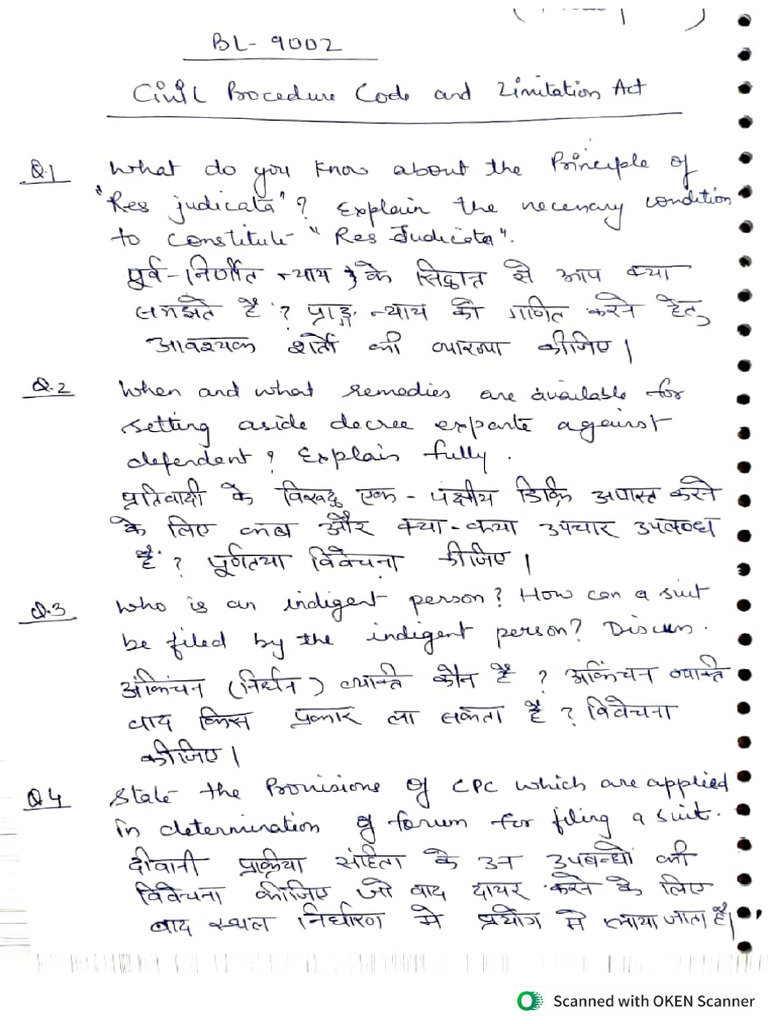 BL-9002
Civil Procedure Code and Limitation Act
Q.1 What do you know about the Principle of
"Res judicata"? Explain the necessary condition
to constitute "Res Judicata".
पूर्व-निर्णीत न्याय के सिद्धान्त से आप क्या
समझते हैं ? प्राङ्ग न्याय को गठित करने हेतु
आवश्यक शर्तों की व्याख्या कीजिए।
Q.2 When and what remedies are available for
setting aside decree exparte against
defendent? Explain fully.
प्रतिवादी के विरुद्ध एक-पक्षीय डिक्रि अपास्त करने
के लिए कब और क्या-क्या उपचार उपलब्ध
हैं ? पूर्णतया विवेचना कीजिए।
Q.3 Who is an indigent person? How can a suit
be filed by the indigent person? Discuss.
अकिंचन (निर्धन) व्यक्ति कौन है ? अकिंचन व्यक्ति
वाद किस प्रकार ला सकता है ? विवेचना
कीजिए।
Q4 State the Provisions of CPC which are applied
in determination of forum for filing a suit.
दीवानी प्रक्रीया संहिता के उन उपबन्धो की
विवेचना कीजिए जो वाद दायर करने के लिए
वाद स्थल निर्धारण मे प्रयोग मे लाया जाता है।
Scanned with OKEN Scanner